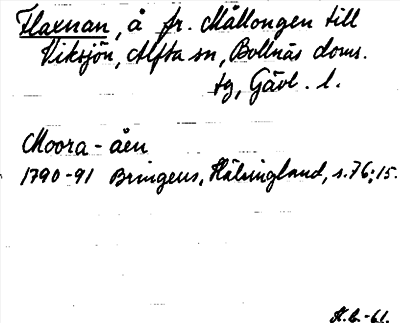 Flaxnan, å fr. Mållongen till
Viksjön, Alfta sn, Bollnäs doms.
tg, Gävl. l.
Moora-åen
1790-91 Bringeus, Hälsingland, s.76;15.
H.G.-61.